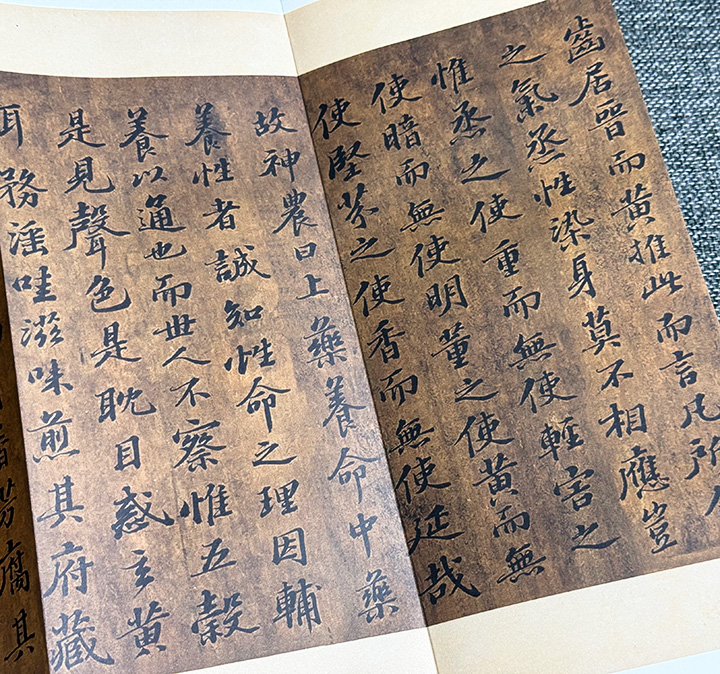 齒居晉而黃推此而言凡所
之氣烝性染身莫不相應豈
惟烝之使重而無使輕害之
使暗而無使明董之使黃而無
使堅芬之使香而無使延哉
故神農曰上藥養命中藥
養性者誠知性命之理因輔
養以通也而世人不察惟五穀
是見聲色是耽目惑玄黃
耳務淫哇滋味煎其府藏
香芳腐其